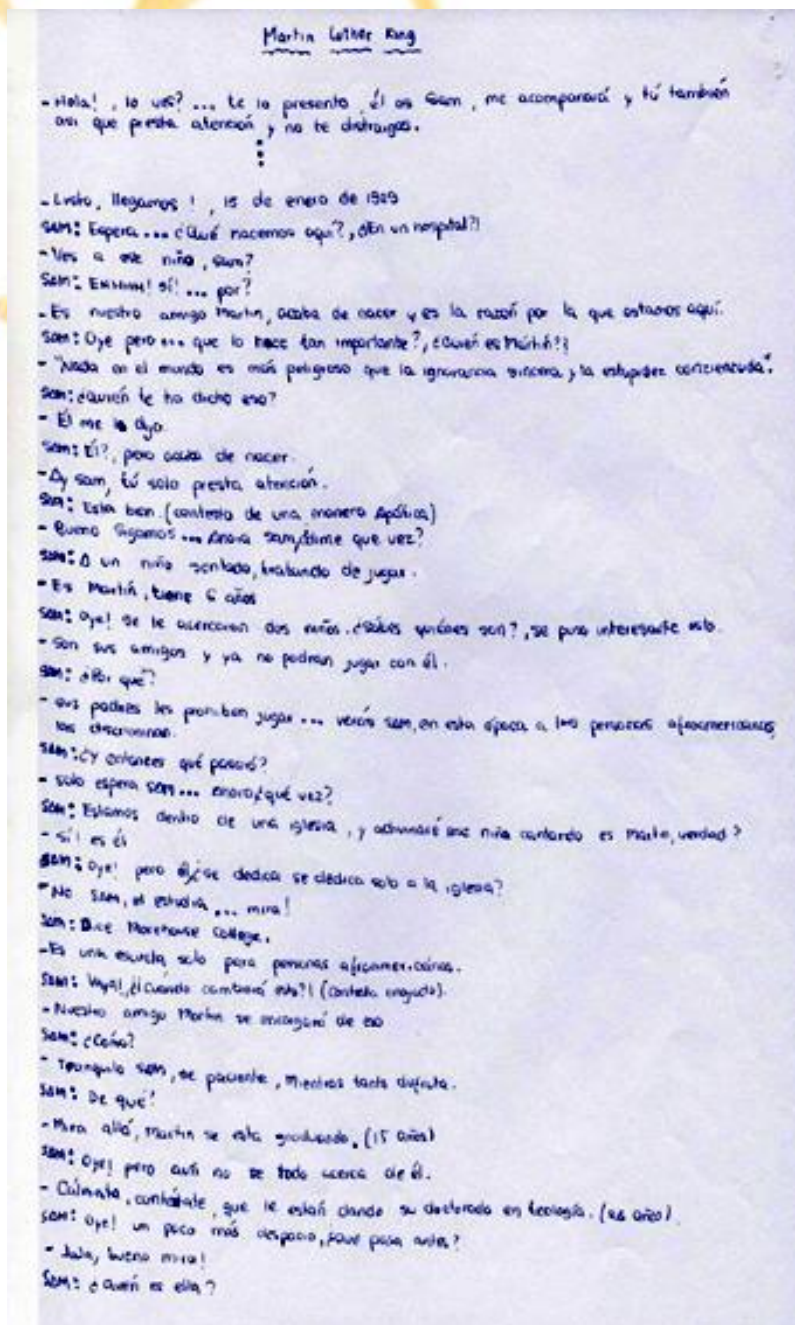 Martin Luther King
- Hola!, lo ves? ... te lo presento, él es Sam, me acompañará y tú también
así que presta atención y no te distraigas.
- Listo, llegamos!, 15 de enero de 1929
SAM: Espera ... ¿Qué hacemos aquí?, ¿En un hospital?!
- Ves a ese niño, Sam?
SAM: EHHHH! sí! ... por?
- Es nuestro amigo Martin, acaba de nacer y es la razón por la que estamos aquí.
Sam: Oye pero ... que lo hace tan importante?, ¿Quién es Martín?!
- "Nada en el mundo es más peligroso que la ignorancia sincera y la estupidez concienzuda".
Sam: ¿quién te ha dicho eso?
- Él me lo dijo
Sam: Él?, pero acaba de nacer.
- Ay Sam, tú solo presta atención.
Sam: Está bien (contesto de una manera Apática)
- Bueno sigamos ... Ahora Sam, dime que vez?
Sam: A un niño sentado, tratando de jugar.
- Es Martín, tiene 6 años
Sam: oye! se le acercaron dos niños. ¿Sabes quiénes son?, se puso interesante esto.
- Son sus amigos y ya no podran jugar con él.
Sam: ¿Por qué?
- sus padres les prohiben jugar ... verás Sam, en esta época a las personas afroamericanas
las discriminan.
Sam: ¿Y entonces qué pasará?
- solo espera Sam ... ahora ¿qué vez?
Sam: Estamos dentro de una iglesia, y niño cantando es Martin, verdad?
- sí! es él
Sam: Oye! pero él ¿se dedica se dedica solo a la iglesia?
- No Sam, él estudia ... mira!
Sam: Dice Morehouse College.
- Es una escuela solo para personas afroamericanas.
Sam: Vaya!, ¿¡Cuándo cambiará esto?! (contesta enojado).
- Nuestro amigo Martin se encargará de eso
Sam: ¿Cómo?
- Tranquilo Sam, se paciente, Mientras tanto disfruta.
Sam: De qué?
- Mira allá, Martin se esta graduando. (15 años)
Sam: Oye! pero aún no se todo acerca de él.
- Calmate, que le están dando su doctorado en teología. años).
Sam: oye! un poco más despacio, ¿qué pasa antes?
- JaJa, bueno mira!
Sam: ¿Quién es ella?